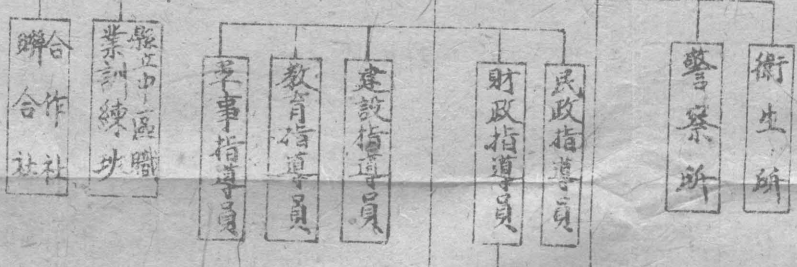 衛生所
警察所
民政指導員
財政指導員
建設指導員
教育指導員
軍事指導員
區職
業訓練班
合作社
聯合社